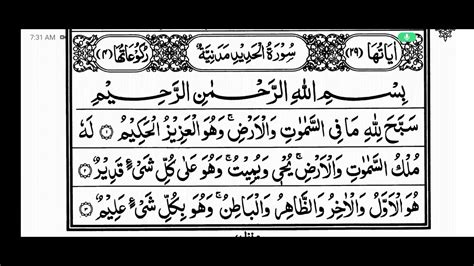 7:31 AM
اٰيَاتُهَا (٢٩) سُوْرَةُ الْحَدِيْدِ مَدَنِيَّةٌ رُكُوْعَاتُهَا (٤)
بِسْمِ اللّٰهِ الرَّحْمٰنِ الرَّحِيْمِ
سَبَّحَ لِلّٰهِ مَا فِي السَّمٰوٰتِ وَالْاَرْضِ ۚ وَهُوَ الْعَزِيْزُ الْحَكِيْمُ ۝١ لَهٗ
مُلْكُ السَّمٰوٰتِ وَالْاَرْضِ ۚ يُحْيٖ وَيُمِيْتُ ۚ وَهُوَ عَلٰى كُلِّ شَيْءٍ قَدِيْرٌ ۝٢
هُوَ الْاَوَّلُ وَالْاٰخِرُ وَالظَّاهِرُ وَالْبَاطِنُ ۚ وَهُوَ بِكُلِّ شَيْءٍ عَلِيْمٌ ۝٣